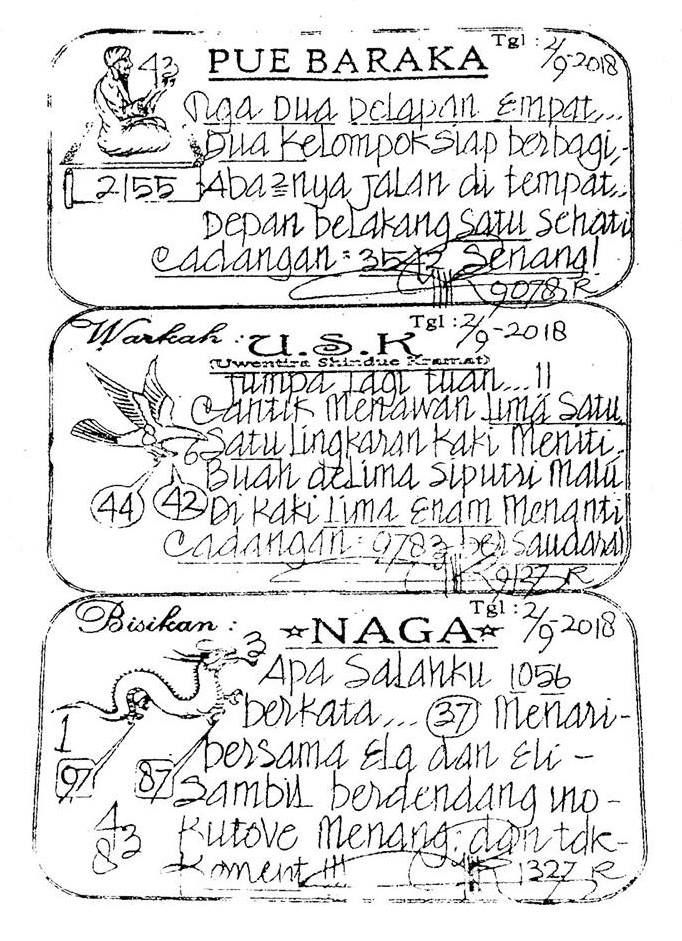 PUE BARAKA Tgl : 2/9-2018
43
Nga Dua Delapan Empat...
Dua Kelompok Siap berbagi,-
2155 Aba2nya jalan di tempat..
Depan belakang Satu Sehati
Cadangan : 3542 Senang!
9078 R
Warkah : U.S.K Tgl : 2/9-2018
(Uwentira Shindue Kramat)
Jumpa lagi tuan...!!
Cantik Menawan Lima Satu
6 Satu Lingkaran Kaki Meniti.
Buah deLima Siputri Malu
44 42 Di Kaki Lima Enam Menanti
Cadangan : 9783 bersaudara
9127 R
Bisikan : ☆NAGA☆ Tgl : 2/9-2018
3
Apa Salahku 1056
berkata... 37 Menari-
1
bersama Elg dan Eli -
97 87 Sambil berdendang ino-
43 Kutove Menang. dan tdk-
8 Koment !!!
1327 R